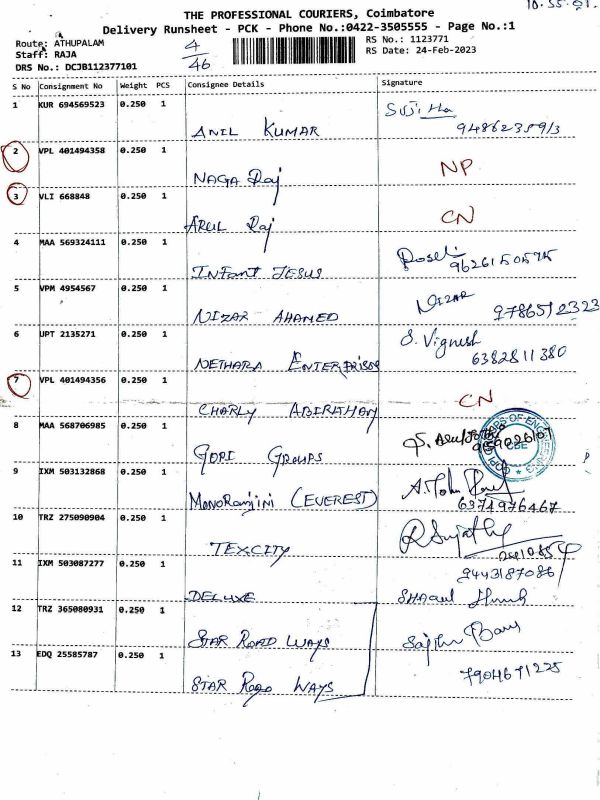 10.55.
THE PROFESSIONAL COURIERS, Coimbatore
Delivery Runsheet - PCK - Phone No.:0422-3505555 - Page No.:1
Route: ATHUPALAM 4/46 RS No.: 1123771
Staff: RAJA RS Date: 24-Feb-2023
DRS No.: DCJB112377101
S No Consignment No Weight PCS Consignee Details Signature
1 KUR 694569523 0.250 1 Sujitha
ANIL KUMAR
2 VPL 401494358 0.250 1
NAGA Raj NP
3 VLI 668848 0.250 1
ARUL Raj CN
4 MAA 569324111 0.250 1
INFANT JESUS
5 VPM 4954567 0.250 1 Nizar
NIZAR AHAMED 9786512323
6 UPT 2135271 0.250 1 S. Vignesh
NETHARA ENTERPRISES 6382811380
7 VPL 401494356 0.250 1 CN
CHARLY ABIRAHAM
8 MAA 568706985 0.250 1
GORI GROUPS
9 IXM 503132868 0.250 1
MONORANJINI (EVEREST) 6374976467
10 TRZ 275090904 0.250 1
TEXCITY
11 IXM 503087277 0.250 1 9443187086
DELUXE
12 TRZ 365080931 0.250 1
STAR ROAD WAYS
13 EDQ 25585787 0.250 1 7904671225
STAR Road WAYS